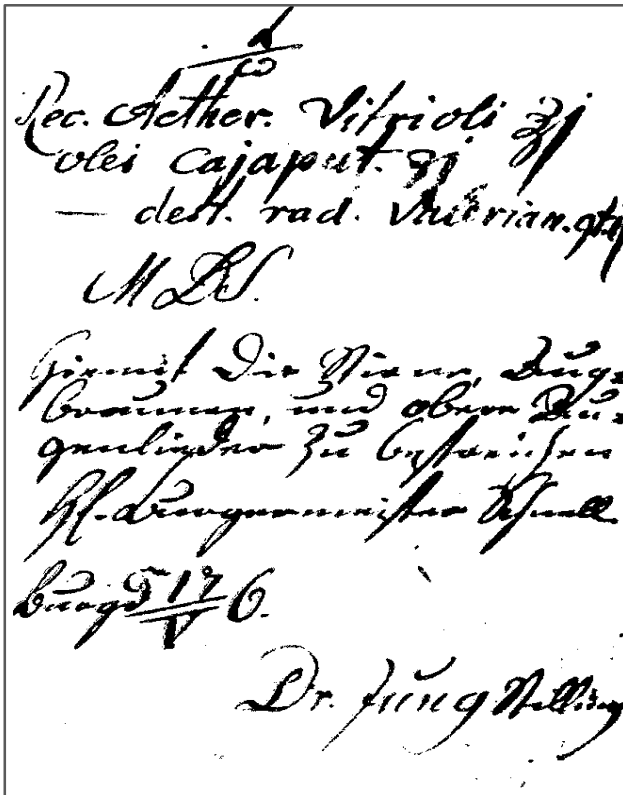 α/ω
Rec. Aether. Vitrioli ʒj
olei Cajaput. ʒj
— dest. rad. Valerian. gtt
M D S.
Hiermit die Stirne, Aug=
braunen, und obere Au=
genlieder zu bestreichen
H. Burgermeister Schnell.
Burgd. 17/V 6.
Dr. Jung Stilling